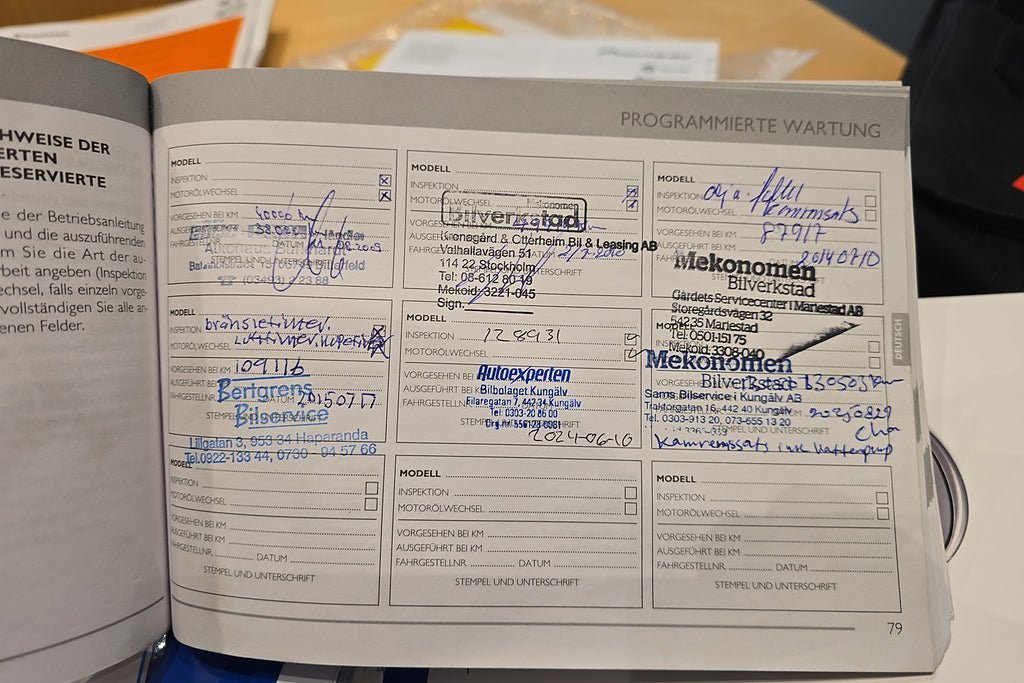 HWEISE DER
ERTEN
ESERVIERTE
e der Betriebsanleitung
und die auszuführenden
m Sie die Art der au-
beit angeben (Inspektion
echsel, falls einzeln vorge-
vervollständigen Sie alle an-
enen Felder.
PROGRAMMIERTE WARTUNG
MODELL
INSPEKTION
MOTORÖLWECHSEL
VORGESEHEN BEI KM 40000
AUSGEFÜHRT BEI KM
FAHRGESTELLNR. DATUM
STEMPEL UND UNTERSCHRIFT
MODELL
INSPEKTION
MOTORÖLWECHSEL
Mekonomen
Bilverkstad
Kranegård & Otterheim Bil & Leasing AB
Valhallavägen 51
114 22 Stockholm
Tel: 08-612 80 49
Mekoid: 3221-045
Sign.
MODELL
INSPEKTION
MOTORÖLWECHSEL kamremsats
VORGESEHEN BEI KM 87917
AUSGEFÜHRT BEI KM
FAHRGESTELLNR. DATUM 20140710
Mekonomen
Bilverkstad
Gärdets Servicecenter i Mariestad AB
Storegårdsvägen 32
542 35 Mariestad
Tel. 0501-151 75
Mekoid. 3308-040
INSPEKTION bränslefilter.
MOTORÖLWECHSEL Luftfilter. kupefilter
VORGESEHEN BEI KM 109116
AUSGEFÜHRT BEI KM
DATUM 20150717
Bertgrens
Bilservice
Lillgatan 3, 953 34 Haparanda
Tel.0922-133 44, 0730 - 94 57 66
MODELL
INSPEKTION 128931
MOTORÖLWECHSEL
VORGESEHEN BEI KM
AUSGEFÜHRT BEI KM
FAHRGESTELLNR.
Autoexperten
Bilbolaget Kungälv
Filaregatan 7, 442 34 Kungälv
Tel: 0303-20 86 00
Org.nr. 556128-6081
2024-06-10
Mekonomen
Bilverkstad 130505km
Sams Bilservice i Kungälv AB
Traktorgatan 16, 442 40 Kungälv
Tel. 0303-913 20, 073-655 13 20
20250829
STEMPEL UND UNTERSCHRIFT
Kamremssats ink Vattenpump
DEUTSCH
MODELL
INSPEKTION
MOTORÖLWECHSEL
VORGESEHEN BEI KM
AUSGEFÜHRT BEI KM
FAHRGESTELLNR. DATUM
STEMPEL UND UNTERSCHRIFT
MODELL
INSPEKTION
MOTORÖLWECHSEL
VORGESEHEN BEI KM
AUSGEFÜHRT BEI KM
FAHRGESTELLNR. DATUM
STEMPEL UND UNTERSCHRIFT
MODELL
INSPEKTION
MOTORÖLWECHSEL
VORGESEHEN BEI KM
AUSGEFÜHRT BEI KM
FAHRGESTELLNR. DATUM
STEMPEL UND UNTERSCHRIFT
79